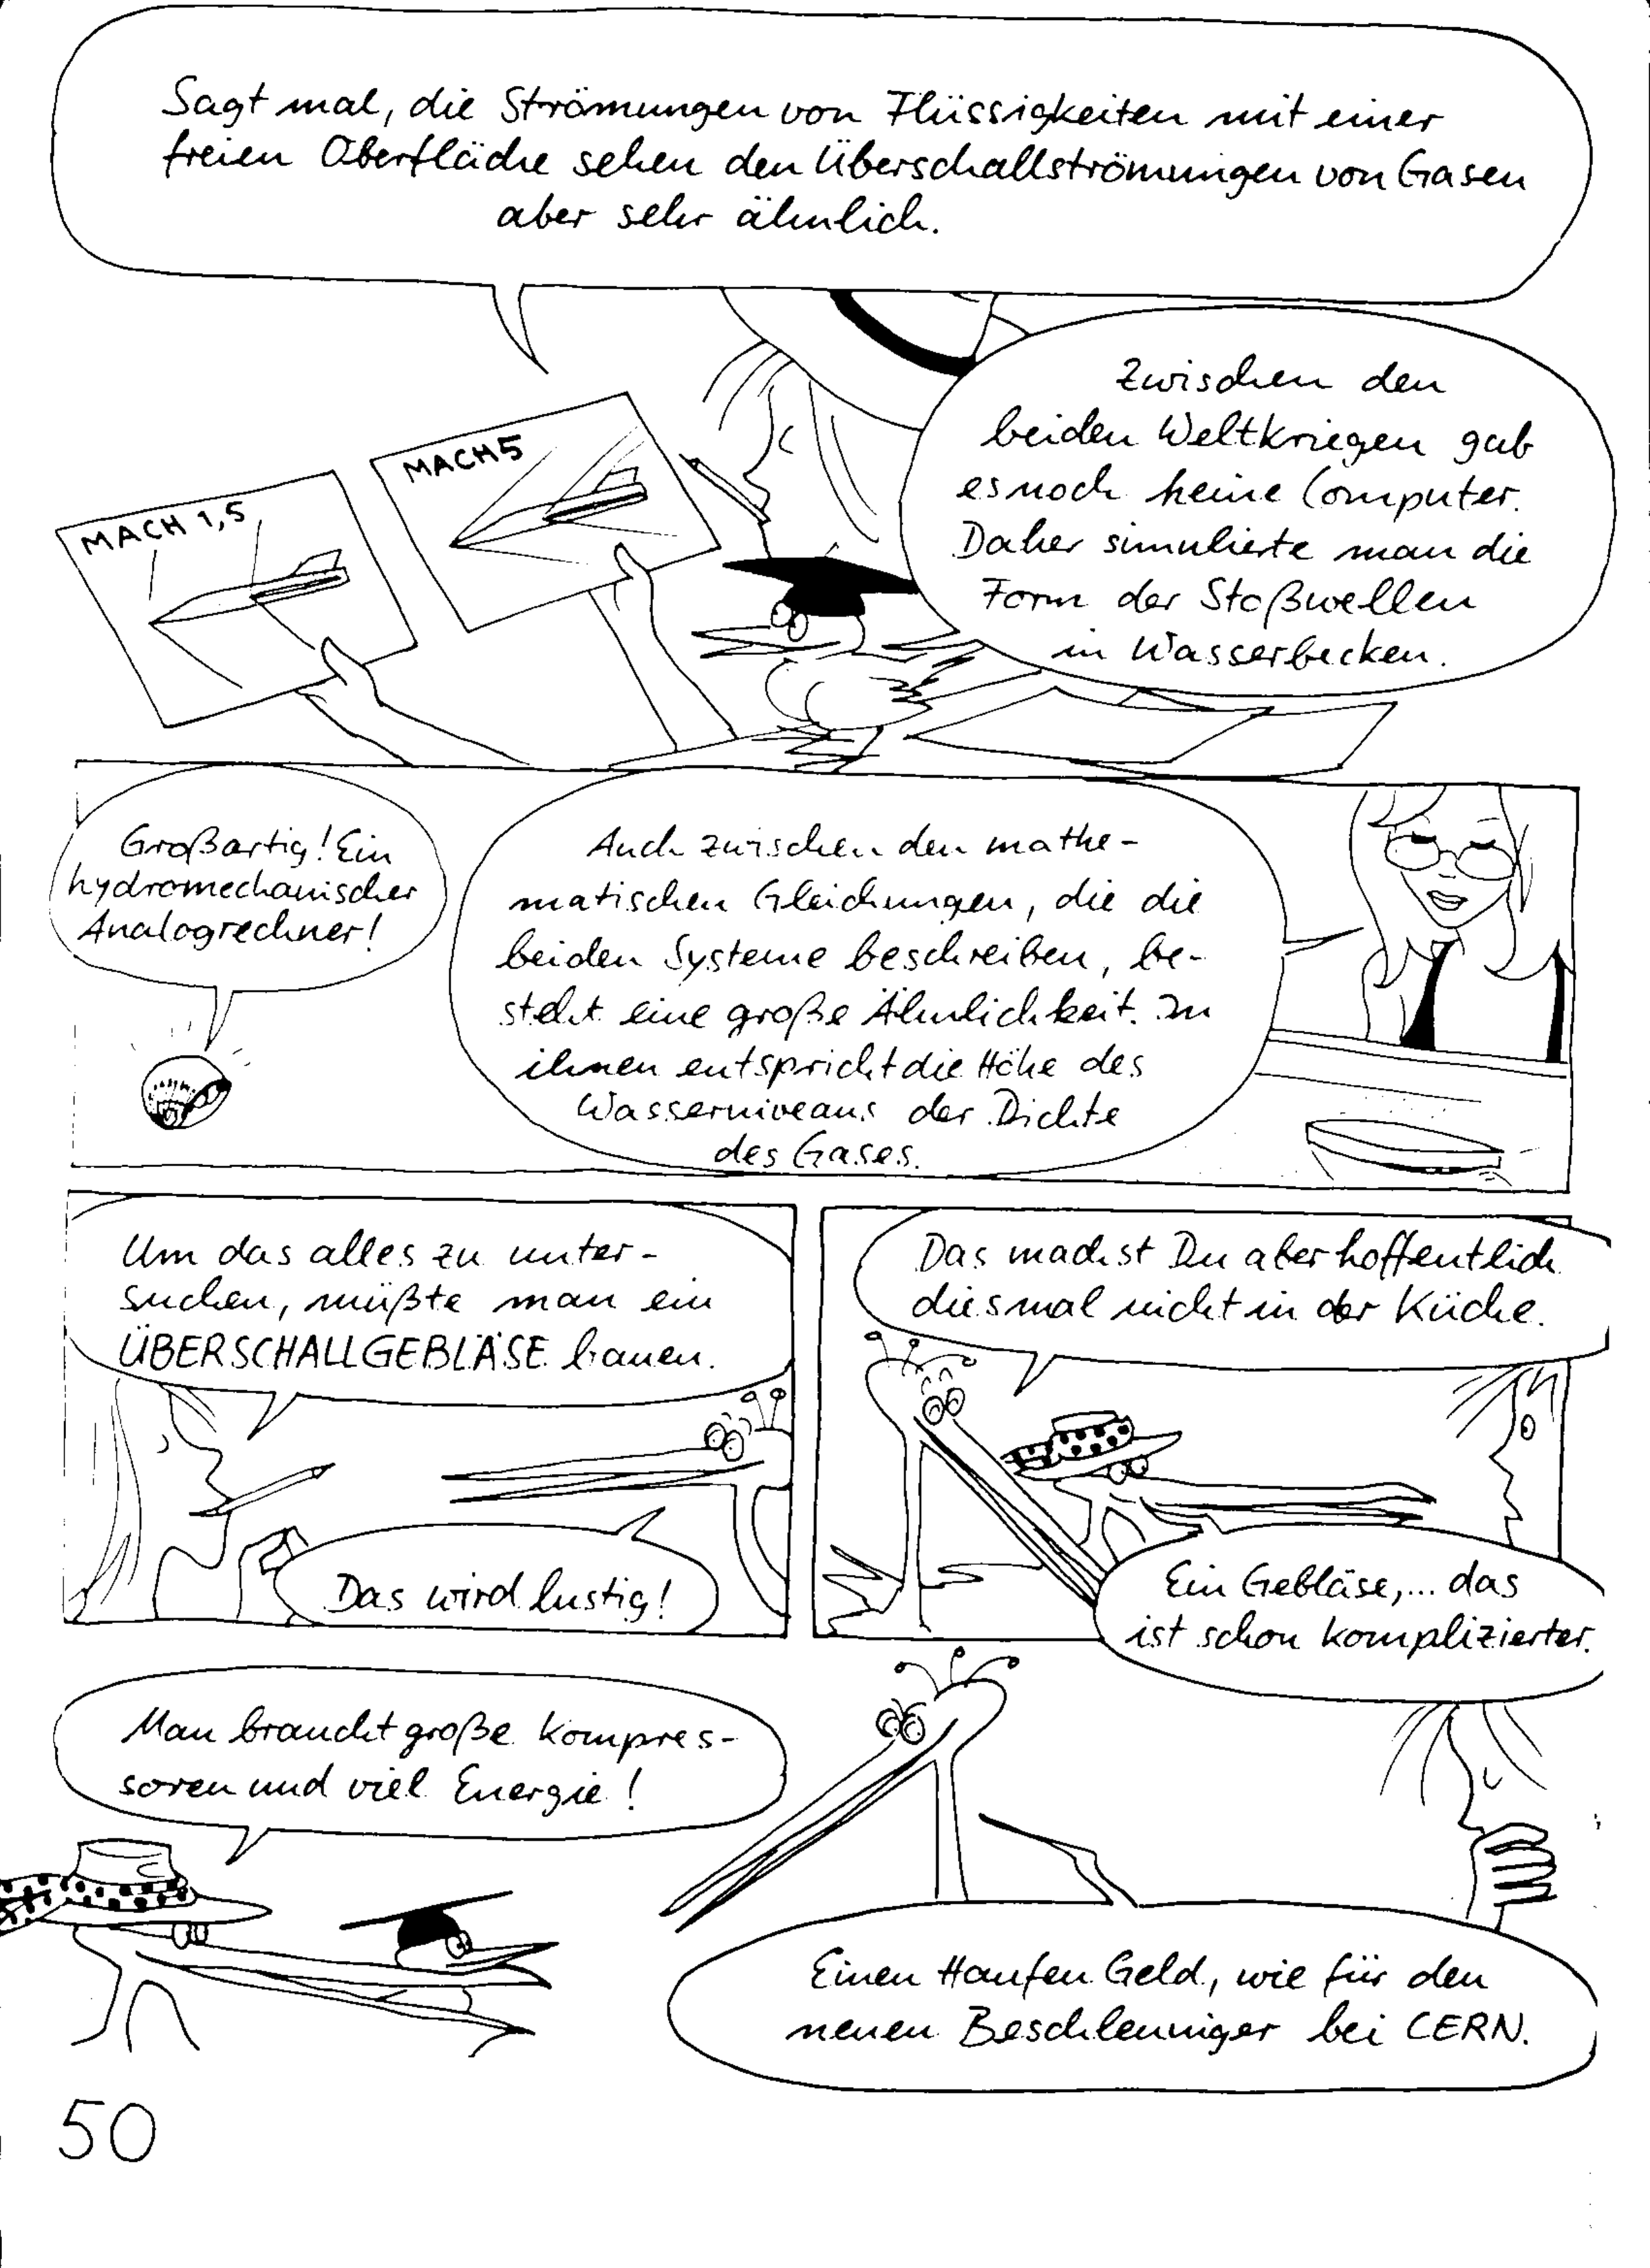 Sagt mal, die Strömungen von Flüssigkeiten mit einer
freien Oberfläche sehen den Überschallströmungen von Gasen
aber sehr ähnlich.
Zwischen den
beiden Weltkriegen gab
es noch keine Computer.
Daher simulierte man die
Form der Stoßwellen
in Wasserbecken.
MACH 1,5
MACH 5
Großartig! Ein
hydromechanischer
Analogrechner!
Auch zwischen den mathe-
matischen Gleichungen, die die
beiden Systeme beschreiben, be-
steht eine große Ähnlichkeit. In
ihnen entspricht die Höhe des
Wasserniveaus der Dichte
des Gases.
Um das alles zu unter-
suchen, müßte man ein
ÜBERSCHALLGEBLÄSE bauen.
Das wird lustig!
Das machst Du aber hoffentlich
diesmal nicht in der Küche.
Ein Gebläse,... das
ist schon komplizierter.
Man braucht große Kompres-
soren und viel Energie!
Einen Haufen Geld, wie für den
neuen Beschleuniger bei CERN.
50